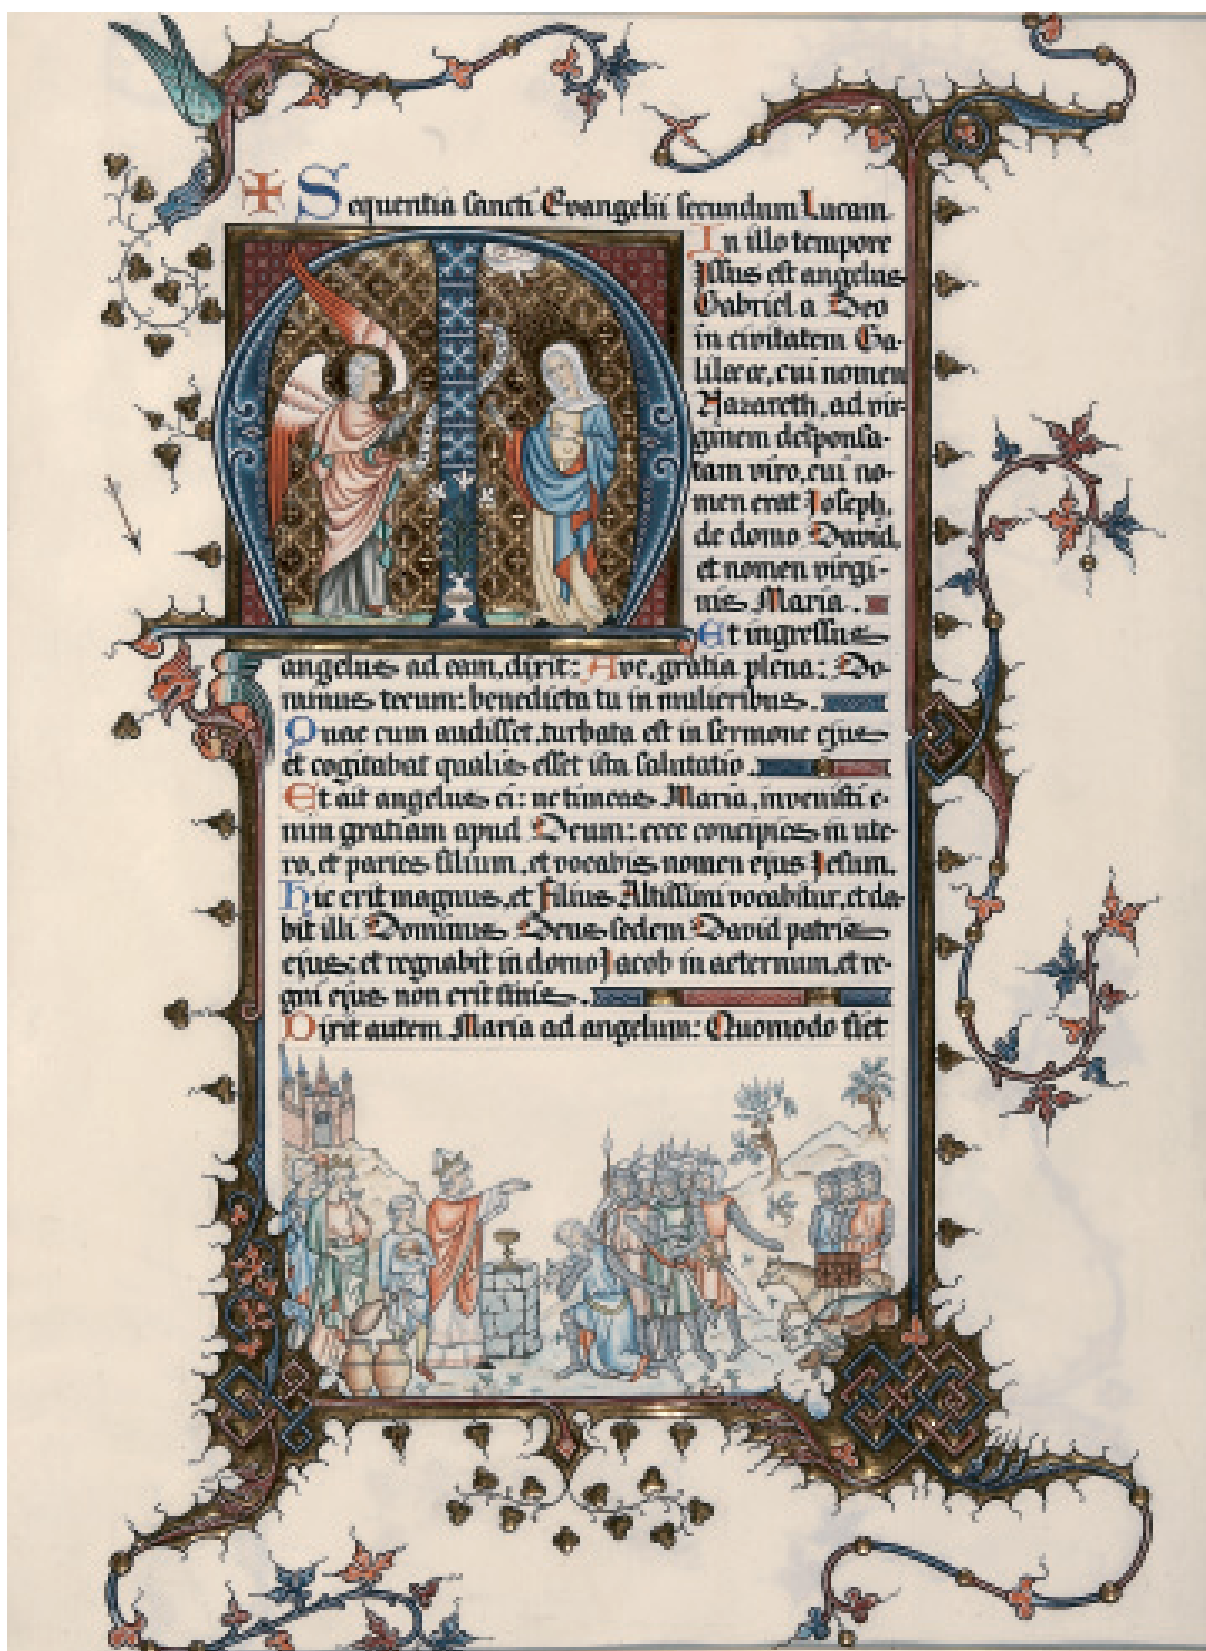 ✠ Sequentia sancti Evangelii secundum Lucam
In illo tempore
Missus est angelus
Gabriel a Deo
in civitatem Ga-
lilææ, cui nomen
Nazareth, ad vir-
ginem desponsa-
tam viro, cui no-
men erat Joseph,
de domo David,
et nomen virgi-
nis Maria.
Et ingressus
angelus ad eam, dixit: Ave, gratia plena: Do-
minus tecum: benedicta tu in mulieribus.
Quae cum audisset, turbata est in sermone ejus
et cogitabat qualis esset ista salutatio.
Et ait angelus ei: ne timeas Maria, invenisti e-
nim gratiam apud Deum: ecce concipies in ute-
ro, et paries filium, et vocabis nomen ejus Jesum.
Hic erit magnus, et Filius Altissimi vocabitur, et da-
bit illi Dominus Deus sedem David patris
ejus; et regnabit in domo Jacob in aeternum, et re-
gni ejus non erit finis.
Dixit autem Maria ad angelum: Quomodo fiet